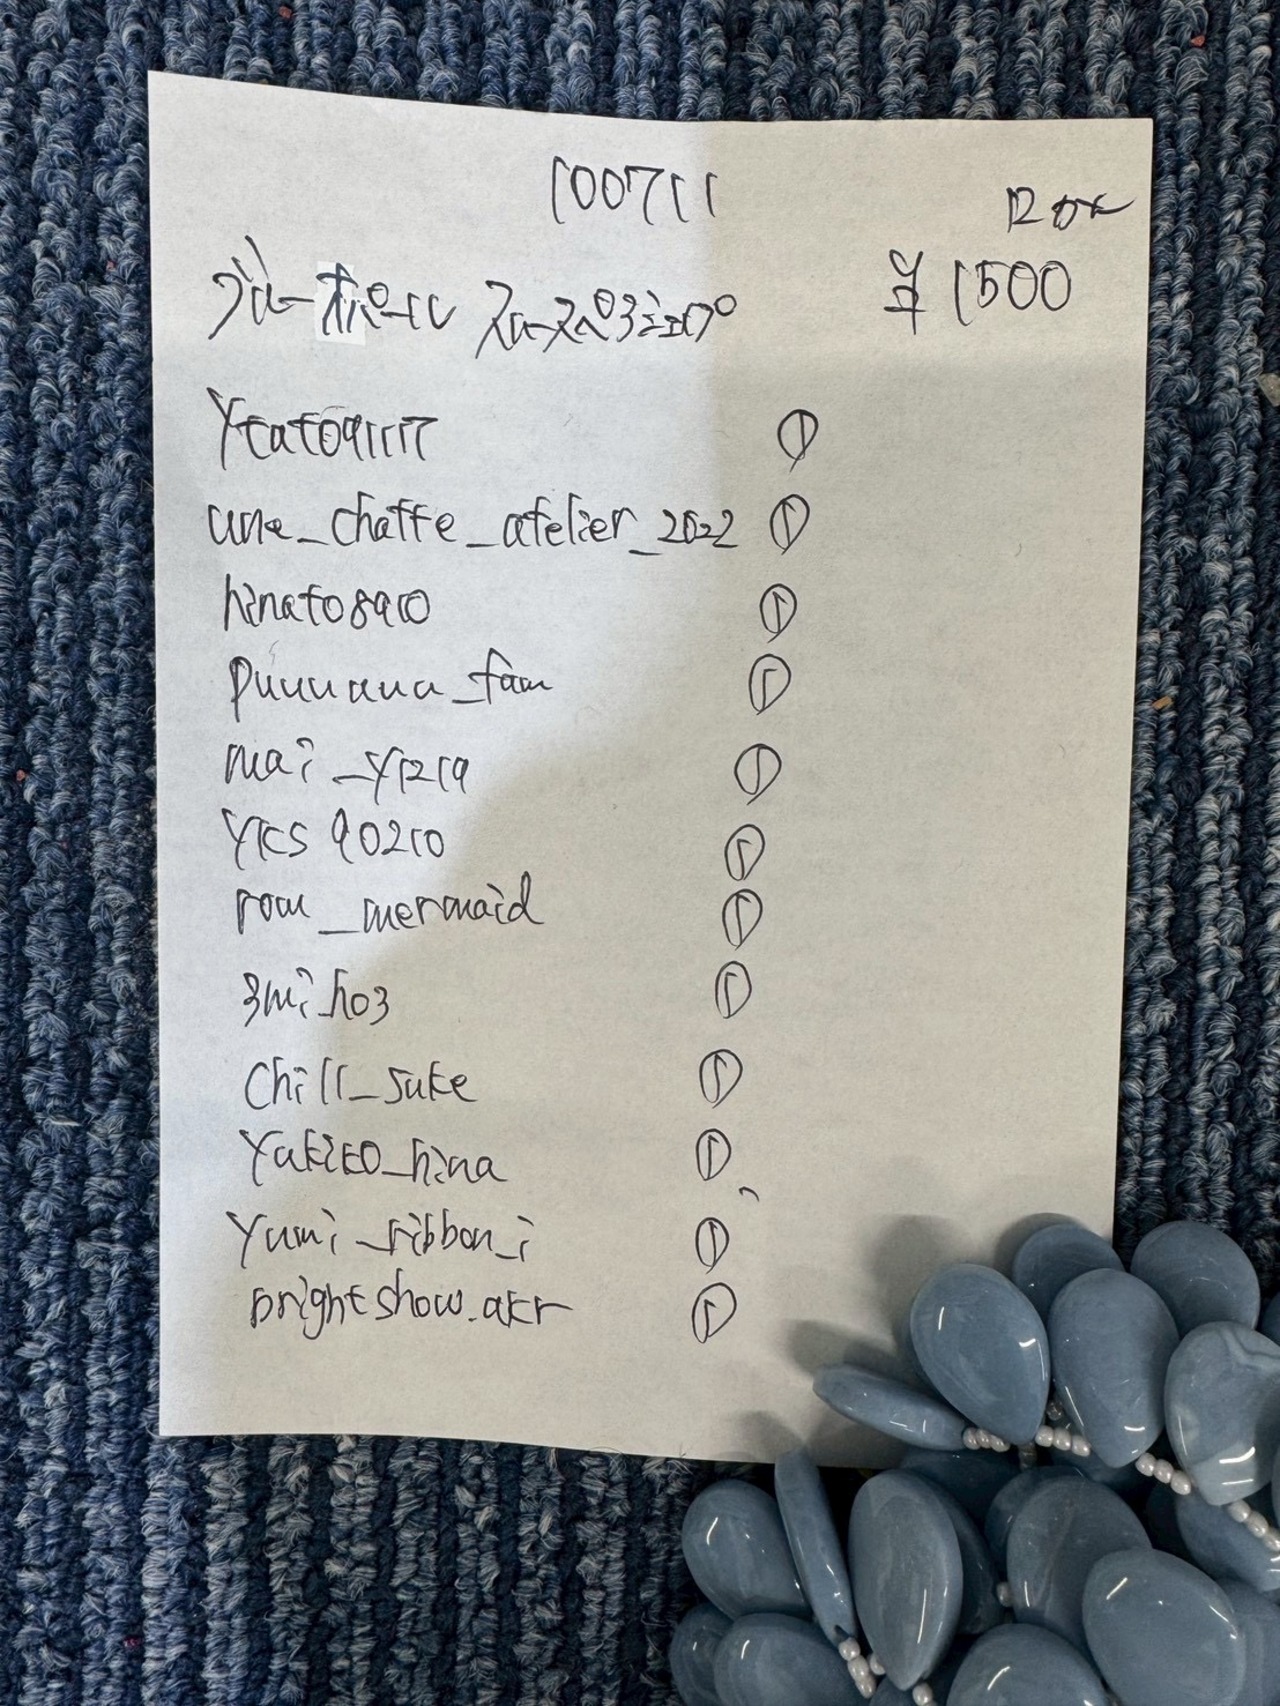 100711
ブルーオパール スムースペアシェイプ
¥1500
ytat091117
une_chatte_atelier_2022 ①
hinato8910 ①
puuuauua_fam ①
mai_y1219 ①
yks90210 ①
rom_mermaid ①
3mi_ho3 ①
chill_suke ①
yukiko_hina ①
yumi_ribbon_i ①
brightshow.akr ①